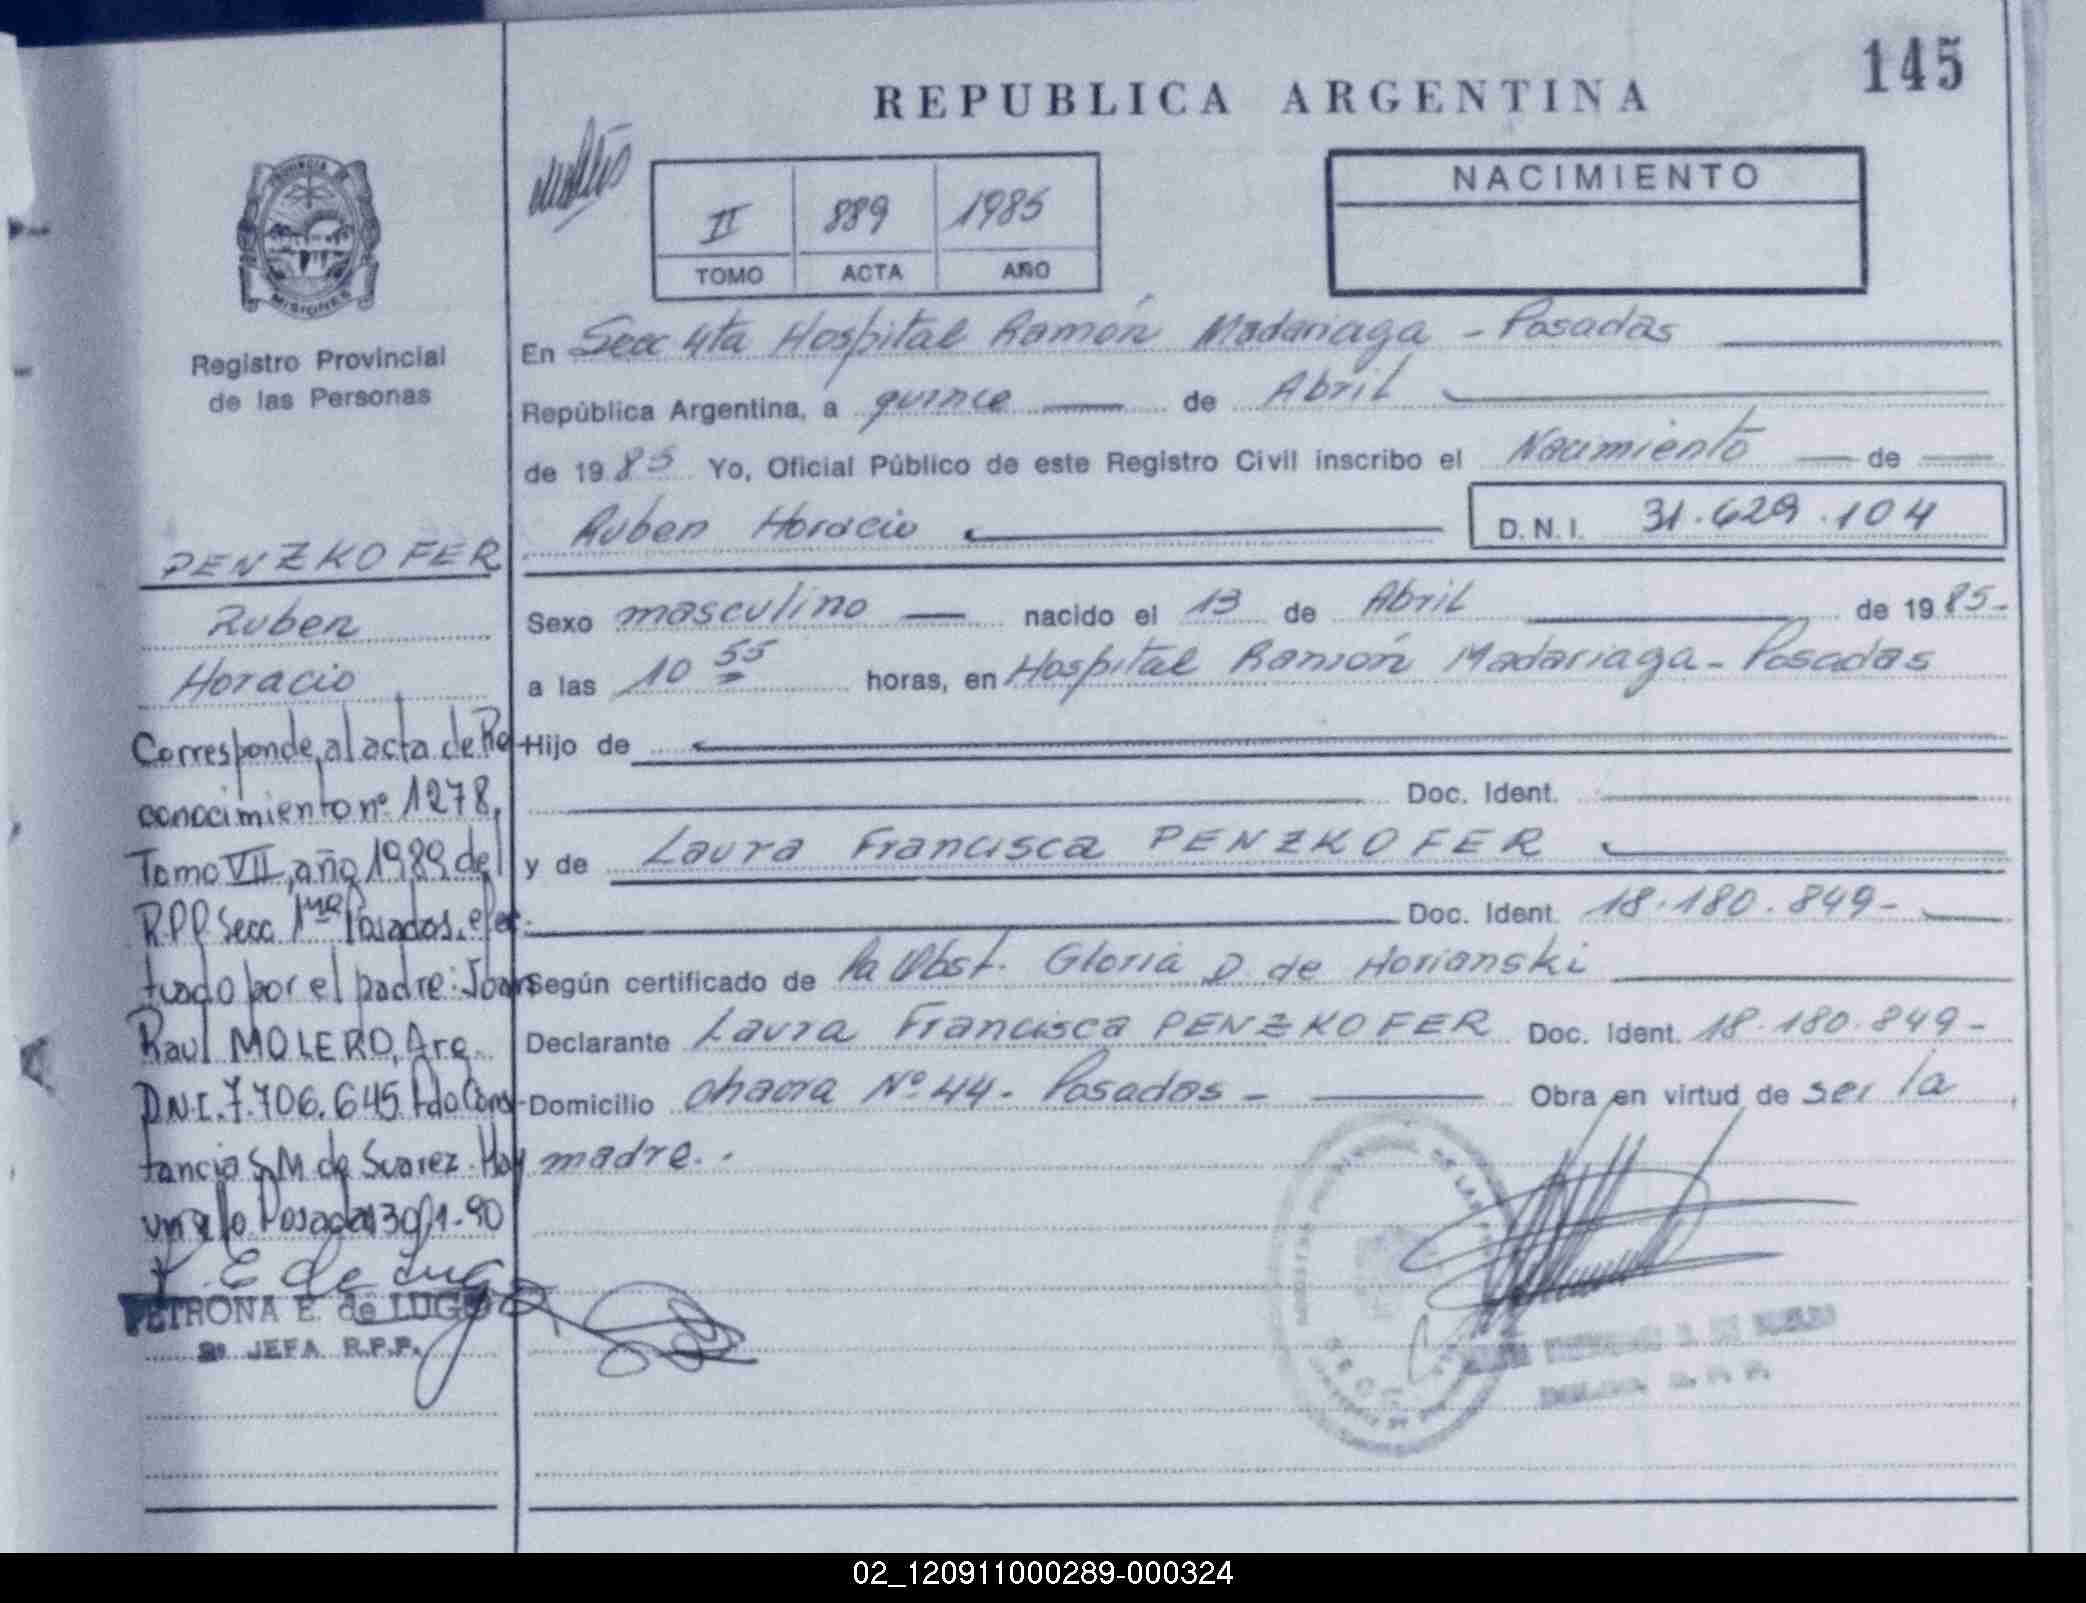 145
REPUBLICA ARGENTINA
II 889 1985
TOMO ACTA AÑO
NACIMIENTO
PROVINCIA DE
MISIONES
Registro Provincial
de las Personas
PENZKOFER
Ruben
Horacio
Corresponde al acta de Re
conocimiento nº 1278,
Tomo VII, año 1989 del
R.P.P Secc 1ra Posadas, efec
tuado por el padre: Juan
Raul MOLERO, Arg.
D.N.I. 7.706.645 Fdo Cons-
tancia S.M de Suarez. Hay
un sello Posadas 30/1-90
PETRONA E. de LUGO
2º JEFA R.P.P.
En Secc 4ta Hospital Ramón Madariaga - Posadas
República Argentina, a quince de Abril
de 1985 Yo, Oficial Público de este Registro Civil inscribo el Nacimiento de
Ruben Horacio D.N.I. 31.629.104
Sexo masculino nacido el 13 de Abril de 1985-
a las 10 55 horas, en Hospital Ramón Madariaga - Posadas
Hijo de
Doc. Ident.
y de Laura Francisca PENZKOFER
Doc. Ident. 18.180.849-
Según certificado de la Obst. Gloria D. de Horianski
Declarante Laura Francisca PENZKOFER Doc. Ident. 18.180.849-
Domicilio chacra Nº 44 - Posadas - Obra en virtud de ser la
madre.
02_120911000289-000324